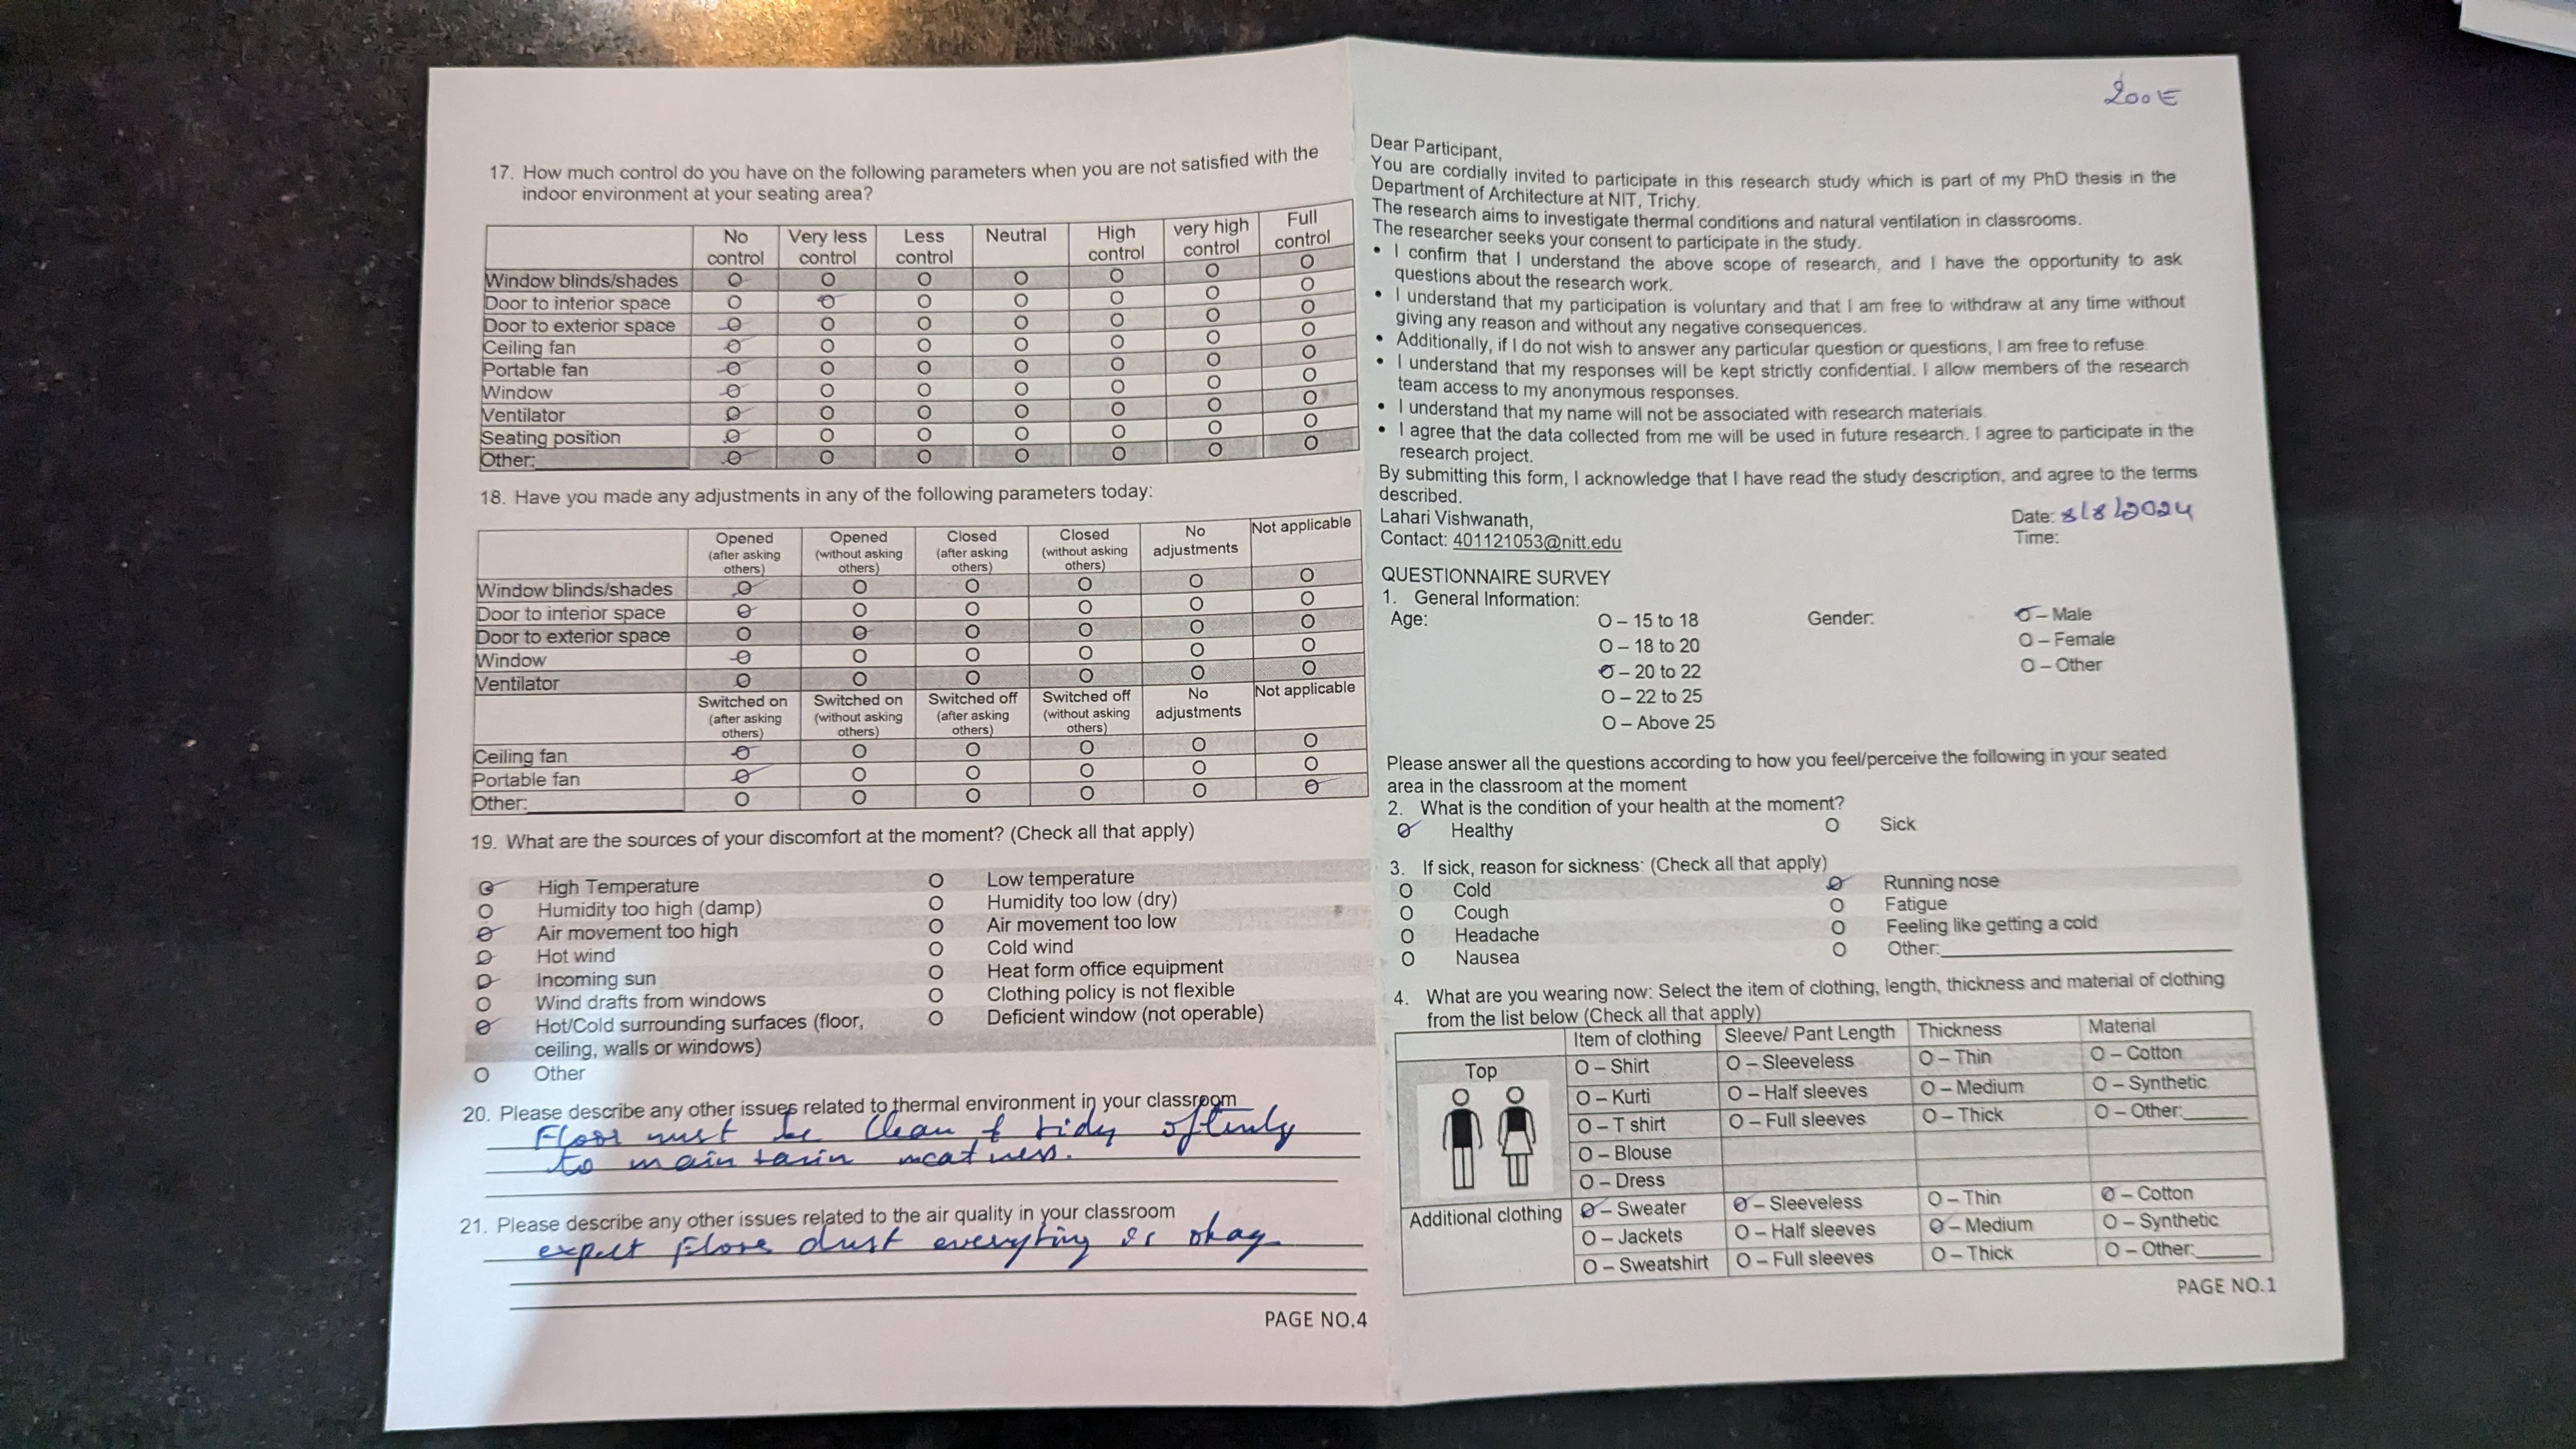 17. How much control do you have on the following parameters when you are not satisfied with the
indoor environment at your seating area?
No control Very less control Less control Neutral High control very high control Full control
Window blinds/shades O O O O O O O
Door to interior space O O O O O O O
Door to exterior space O O O O O O O
Ceiling fan O O O O O O O
Portable fan O O O O O O O
Window O O O O O O O
Ventilator O O O O O O O
Seating position O O O O O O O
Other:__________ O O O O O O O
18. Have you made any adjustments in any of the following parameters today:
Opened (after asking others) Opened (without asking others) Closed (after asking others) Closed (without asking others) No adjustments Not applicable
Window blinds/shades O O O O O O
Door to interior space O O O O O O
Door to exterior space O O O O O O
Window O O O O O O
Ventilator O O O O O O
Switched on (after asking others) Switched on (without asking others) Switched off (after asking others) Switched off (without asking others) No adjustments Not applicable
Ceiling fan O O O O O O
Portable fan O O O O O O
Other:__________ O O O O O O
19. What are the sources of your discomfort at the moment? (Check all that apply)
O High Temperature O Low temperature
O Humidity too high (damp) O Humidity too low (dry)
O Air movement too high O Air movement too low
O Hot wind O Cold wind
O Incoming sun O Heat form office equipment
O Wind drafts from windows O Clothing policy is not flexible
O Hot/Cold surrounding surfaces (floor, O Deficient window (not operable)
ceiling, walls or windows)
O Other
20. Please describe any other issues related to thermal environment in your classroom
Floor must be clean & tidy oftenly
to maintain neatness.
21. Please describe any other issues related to the air quality in your classroom
expect floor dust everything is okay
PAGE NO.4
200E
Dear Participant,
You are cordially invited to participate in this research study which is part of my PhD thesis in the
Department of Architecture at NIT, Trichy.
The research aims to investigate thermal conditions and natural ventilation in classrooms.
The researcher seeks your consent to participate in the study.
• I confirm that I understand the above scope of research, and I have the opportunity to ask
questions about the research work.
• I understand that my participation is voluntary and that I am free to withdraw at any time without
giving any reason and without any negative consequences.
• Additionally, if I do not wish to answer any particular question or questions, I am free to refuse.
• I understand that my responses will be kept strictly confidential. I allow members of the research
team access to my anonymous responses.
• I understand that my name will not be associated with research materials.
• I agree that the data collected from me will be used in future research. I agree to participate in the
research project.
By submitting this form, I acknowledge that I have read the study description, and agree to the terms
described.
Lahari Vishwanath, Date: 8/8/2024
Contact: 401121053@nitt.edu Time:
QUESTIONNAIRE SURVEY
1. General Information:
Age: O – 15 to 18 Gender: O – Male
O – 18 to 20 O – Female
O – 20 to 22 O – Other
O – 22 to 25
O – Above 25
Please answer all the questions according to how you feel/perceive the following in your seated
area in the classroom at the moment
2. What is the condition of your health at the moment?
O Healthy O Sick
3. If sick, reason for sickness: (Check all that apply)
O Cold O Running nose
O Cough O Fatigue
O Headache O Feeling like getting a cold
O Nausea O Other:__________
4. What are you wearing now: Select the item of clothing, length, thickness and material of clothing
from the list below (Check all that apply)
Item of clothing Sleeve/ Pant Length Thickness Material
Top O – Shirt O – Sleeveless O – Thin O – Cotton
O – Kurti O – Half sleeves O – Medium O – Synthetic
O – T shirt O – Full sleeves O – Thick O – Other:_____
O – Blouse
O – Dress
Additional clothing O – Sweater O – Sleeveless O – Thin O – Cotton
O – Jackets O – Half sleeves O – Medium O – Synthetic
O – Sweatshirt O – Full sleeves O – Thick O – Other:_____
PAGE NO.1